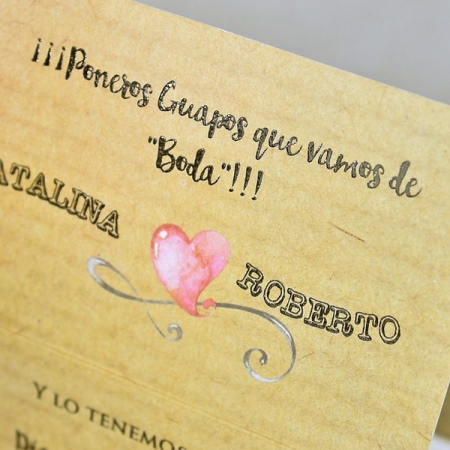 ¡¡¡Poneros Guapos que vamos de
"Boda"!!!
ATALINA
ROBERTO
Y LO TENEMOS